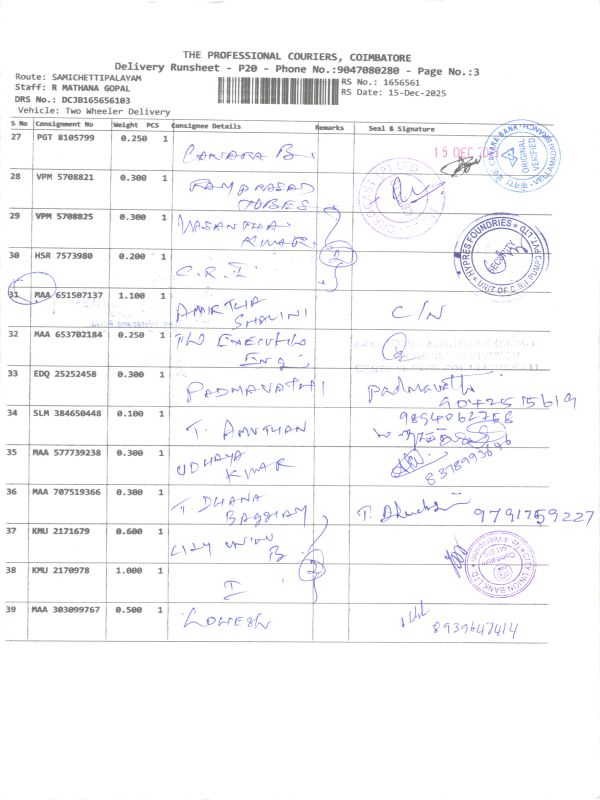 THE PROFESSIONAL COURIERS, COIMBATORE
Delivery Runsheet - P20 - Phone No.:9047080280 - Page No.:3
Route: SAMICHETTIPALAYAM
RS No.: 1656561
Staff: R MATHANA GOPAL
RS Date: 15-Dec-2025
DRS No.: DCJB165656103
Vehicle: Two Wheeler Delivery
S No Consignment No Weight PCS Consignee Details Remarks Seal & Signature
27 PGT 8105799 0.250 1 CANARA B. 15 DEC
CANARA BANK ORIGINAL VERIFIED
28 VPM 5708821 0.300 1 RAMPRASAD TUBES
29 VPM 5708825 0.300 1 VASANTHA KUMAR
2
HYPRES FOUNDRIES SECURITY UNIT OF C.R.I. PUMPS PVT LTD
30 HSR 7573980 0.200 1 C.R.I
31 MAA 651507137 1.100 1 AMIRTHA SHALINI C/N
32 MAA 653702184 0.250 1 THE EXECUTIVE Eng
33 EDQ 25252458 0.300 1 PADMAVATHI Padmavathi
9042515619
34 SLM 384650448 0.100 1 T. AMUTHAN 9894062758
35 MAA 577739238 0.300 1 UDHAYA KUMAR 8378993646
36 MAA 707519366 0.300 1 T. DHANA BAGGIAM 9791759227
37 KMU 2171679 0.600 1 CITY UNION B.
2
CITY UNION BANK LTD
38 KMU 2170978 1.000 1 I
39 MAA 303099767 0.500 1 LOHESH 8939647414